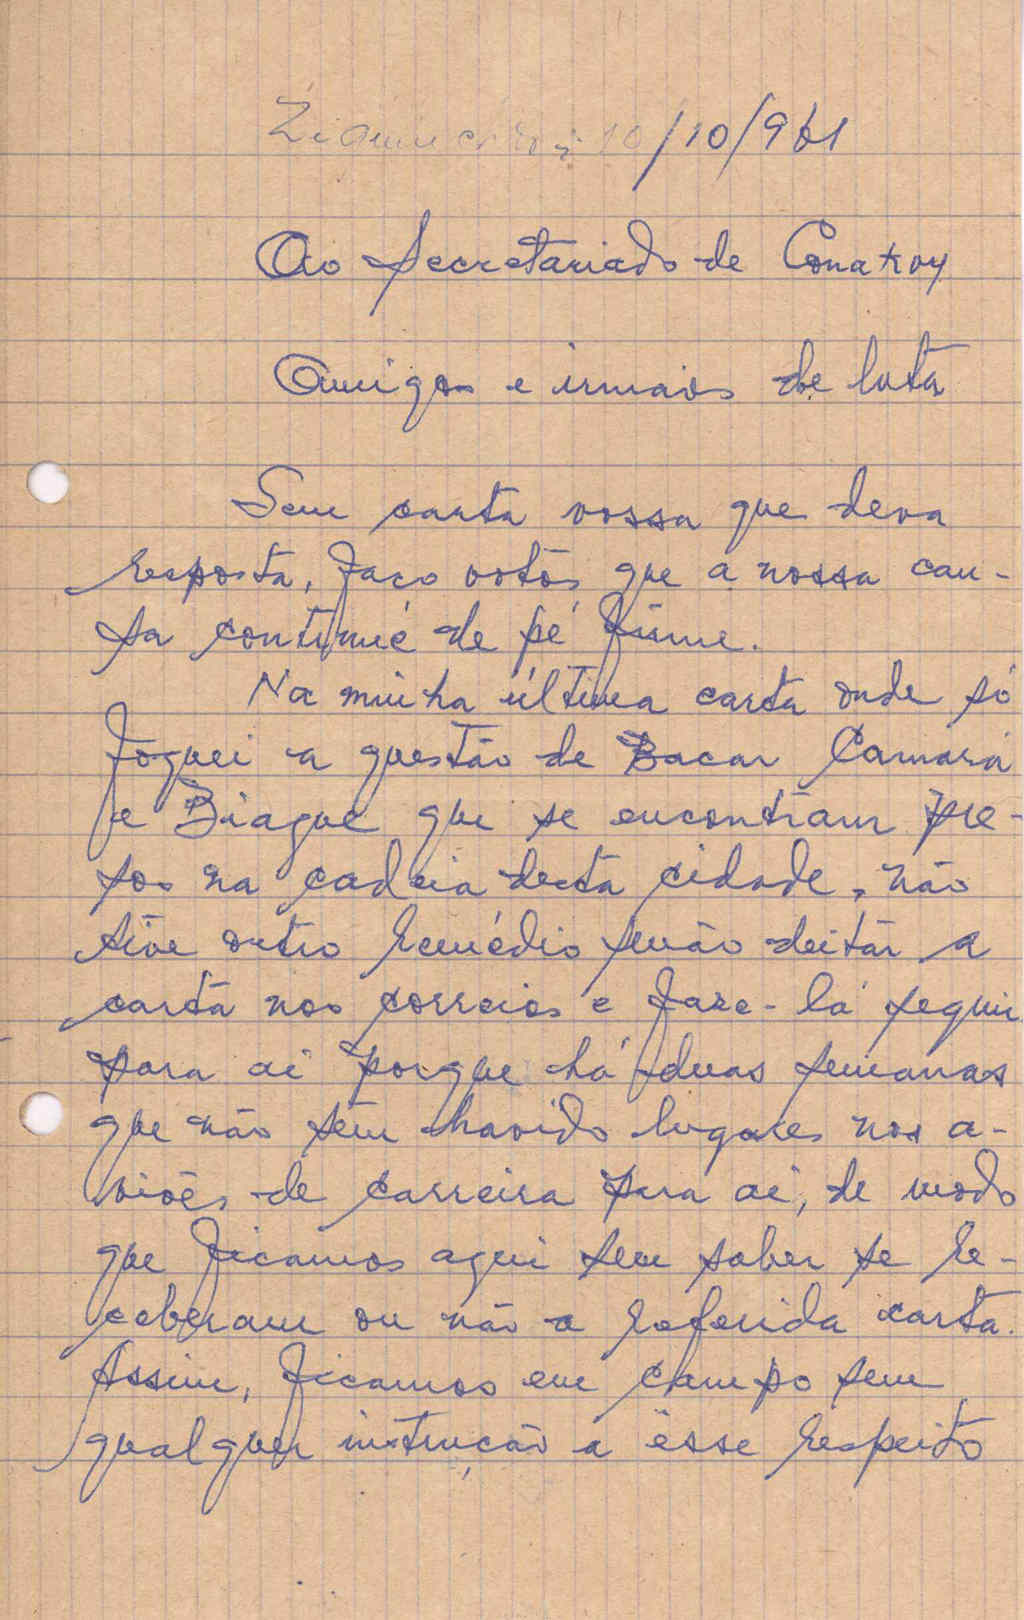 10/10/961
Ao Secretariado de Conakry
Amigos e irmãos de luta
Sem carta vossa que deva
resposta, faço votos que a nossa cau-
sa continué de pé firme.
Na minha última carta onde só
foquei a questão de Bacar Camará
e Biague que se encontram pre-
sos na cadeia desta cidade, não
tive outro remédio senão deitar a
carta nos correios e faze-lá seguir
para aí porque há duas semanas
que não tem havido lugares nos a-
viões de carreira para aí, de modo
que ficamos aqui sem saber se re-
ceberam ou não a referida carta.
Assim, ficamos em campo sem
qualquer instrução a êsse respeito